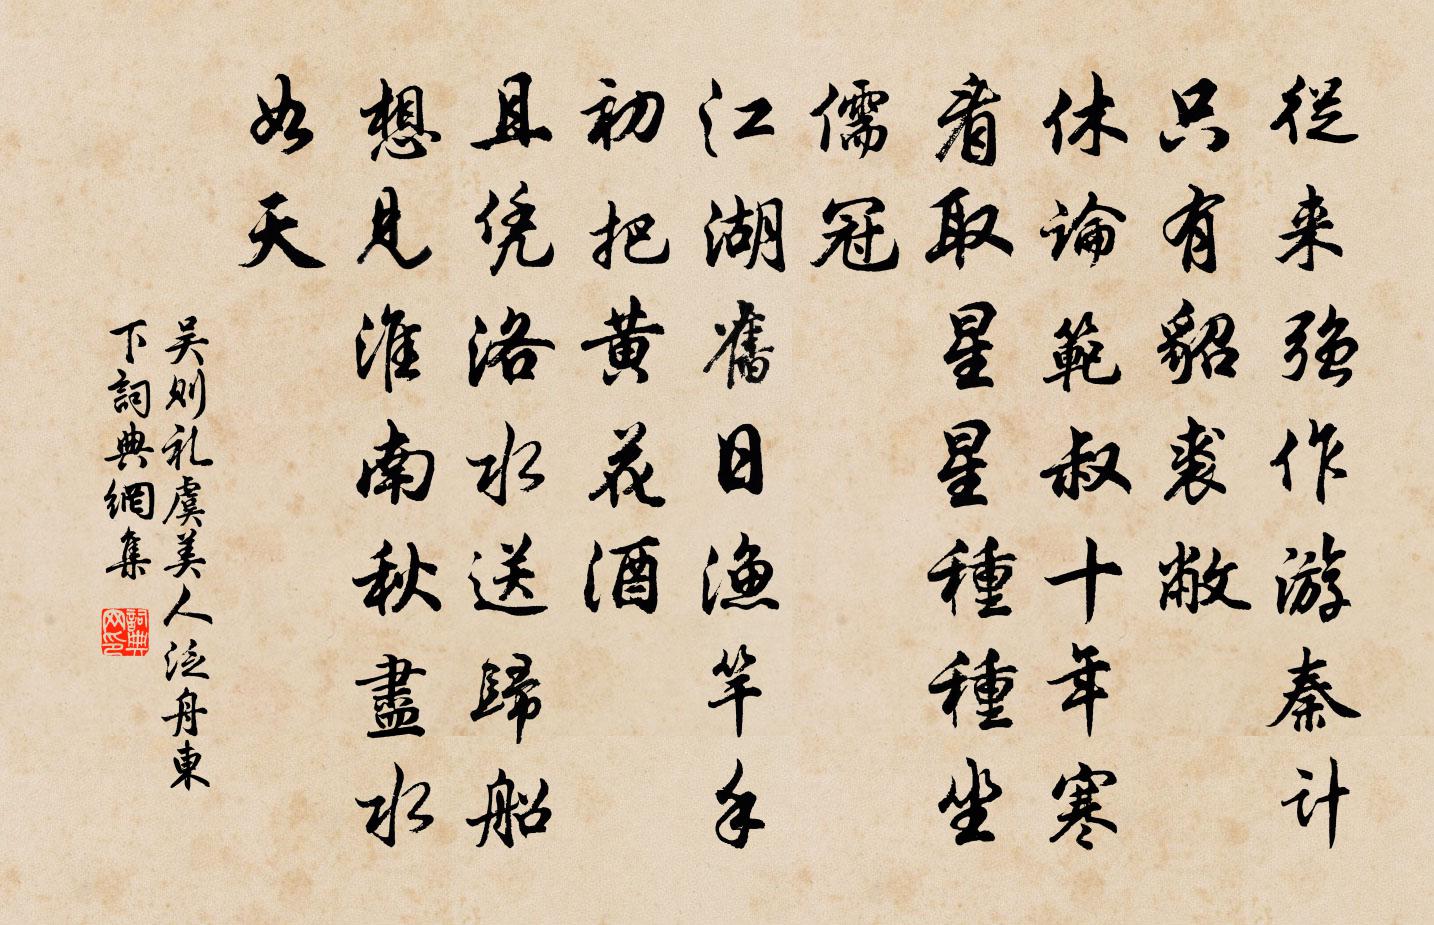 從来强作游秦計
只有貂裘敝
休論範叔十年寒
看取星星種種坐
儒冠
江湖舊日漁竿手
初把黄花酒
且凭洛水送歸船
想見淮南秋盡水
如天
吴则礼虞美人泛舟東
下詞典網集
詞典
网印